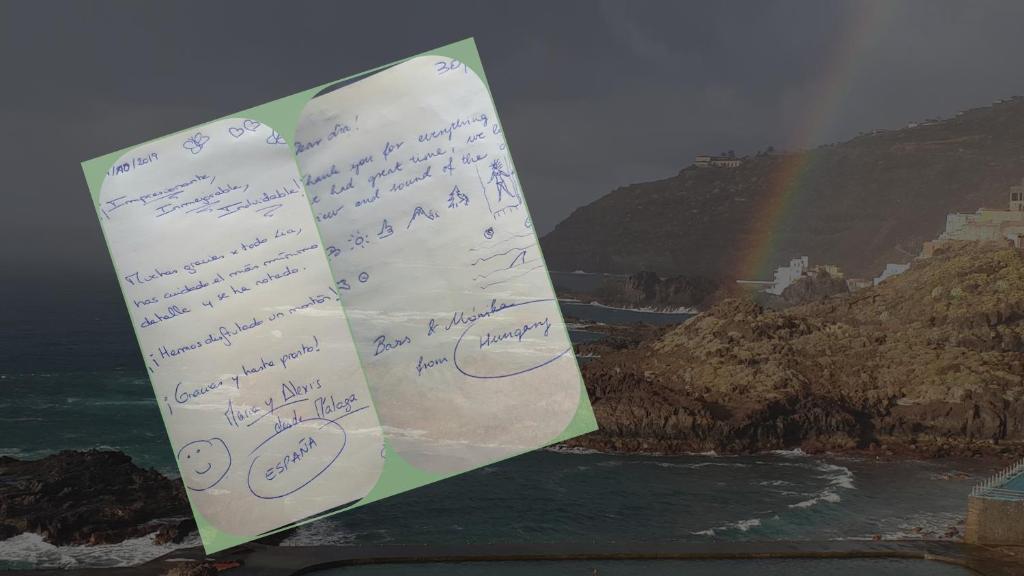 /10/2019
¡Impresionante,
Inmejorable,
Inolvidable!
Muchas gracias x todo Lia,
has cuidado el más mínimo
detalle y se ha notado.
¡¡Hemos disfrutado un montón!!
¡Gracias y hasta pronto!
María y Alexis
desde Málaga
ESPAÑA
Dear Lia!
Thank you for everything
had great time, we
view and sound of the
Bars & Mónika
from Hungary